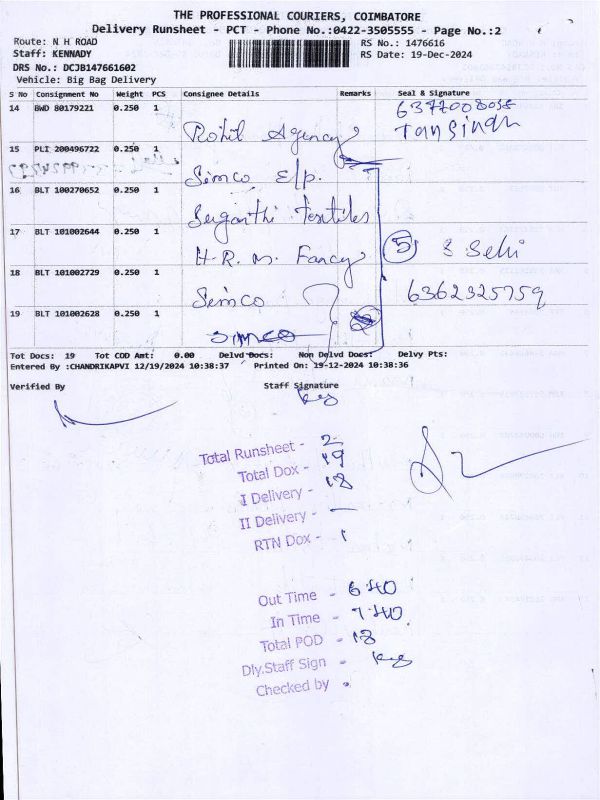 THE PROFESSIONAL COURIERS, COIMBATORE
Delivery Runsheet - PCT - Phone No.:0422-3505555 - Page No.:2
Route: N H ROAD RS No.: 1476616
Staff: KENNADY RS Date: 19-Dec-2024
DRS No.: DCJB147661602
Vehicle: Big Bag Delivery
S No Consignment No Weight PCS Consignee Details Remarks Seal & Signature
14 BWD 80179221 0.250 1
Rohit Agency Tansingh
15 PLI 200496722 0.250 1
Simco E/p.
16 BLT 100270652 0.250 1
Textiles
17 BLT 101002644 0.250 1
H.R.M. Fancy 5
18 BLT 101002729 0.250 1
Simco 6362325759
19 BLT 101002628 0.250 1
SIMCO
Tot Docs: 19 Tot COD Amt: 0.00 Delvd Docs: Non Delvd Docs: Delvy Pts:
Entered By :CHANDRIKAPVI 12/19/2024 10:38:37 Printed On: 19-12-2024 10:38:36
Verified By Staff Signature
Total Runsheet - 2
Total Dox - 19
I Delivery - 18
II Delivery - —
RTN Dox - 1
Out Time - 6:40
In Time - 7:40
Total POD - 18
Dly.Staff Sign -
Checked by